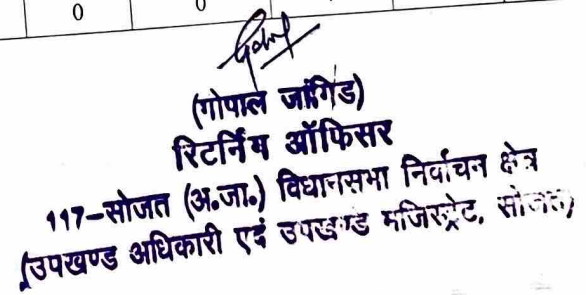 0 0
(गोपाल जांगिड)
रिटर्निंग ऑफिसर
117-सोजत (अ.जा.) विधानसभा निर्वाचन क्षेत्र
(उपखण्ड अधिकारी एवं उपखण्ड मजिस्ट्रेट, सोजत)